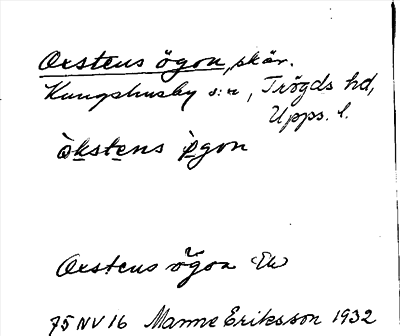 Oxstens ögon, skär.
Kungshusby s:n, Trögds hd,
Upps. l.
òkstens ögon
Oxstens ögon Ek
75 NV 16 Manne Eriksson 1932